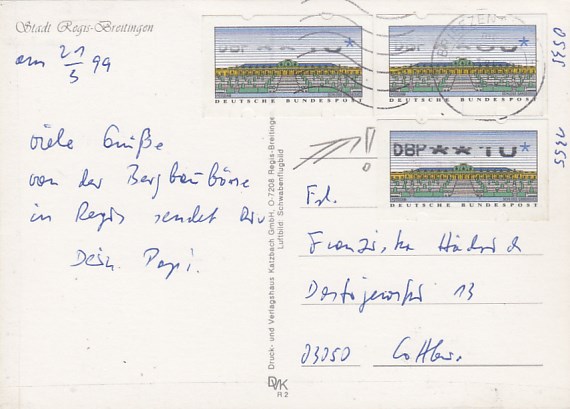 Stadt Regis-Breitingen
am 21/3 99
viele Grüße
von der Bergbaubörse
in Regis sendet Dir
Dein Papi.
Druck- und Verlagshaus Katzbach GmbH, O-7208 Regis-Breitingen
Luftbild: Schwabenflugbild
DVK
R 2
DBP **10*
DEUTSCHE BUNDESPOST
DBP **80*
DEUTSCHE BUNDESPOST
DBP **10*
DEUTSCHE BUNDESPOST
BRIEFZEN
0535
1355
Frl.
Franziska
13
03050 Cottbus.